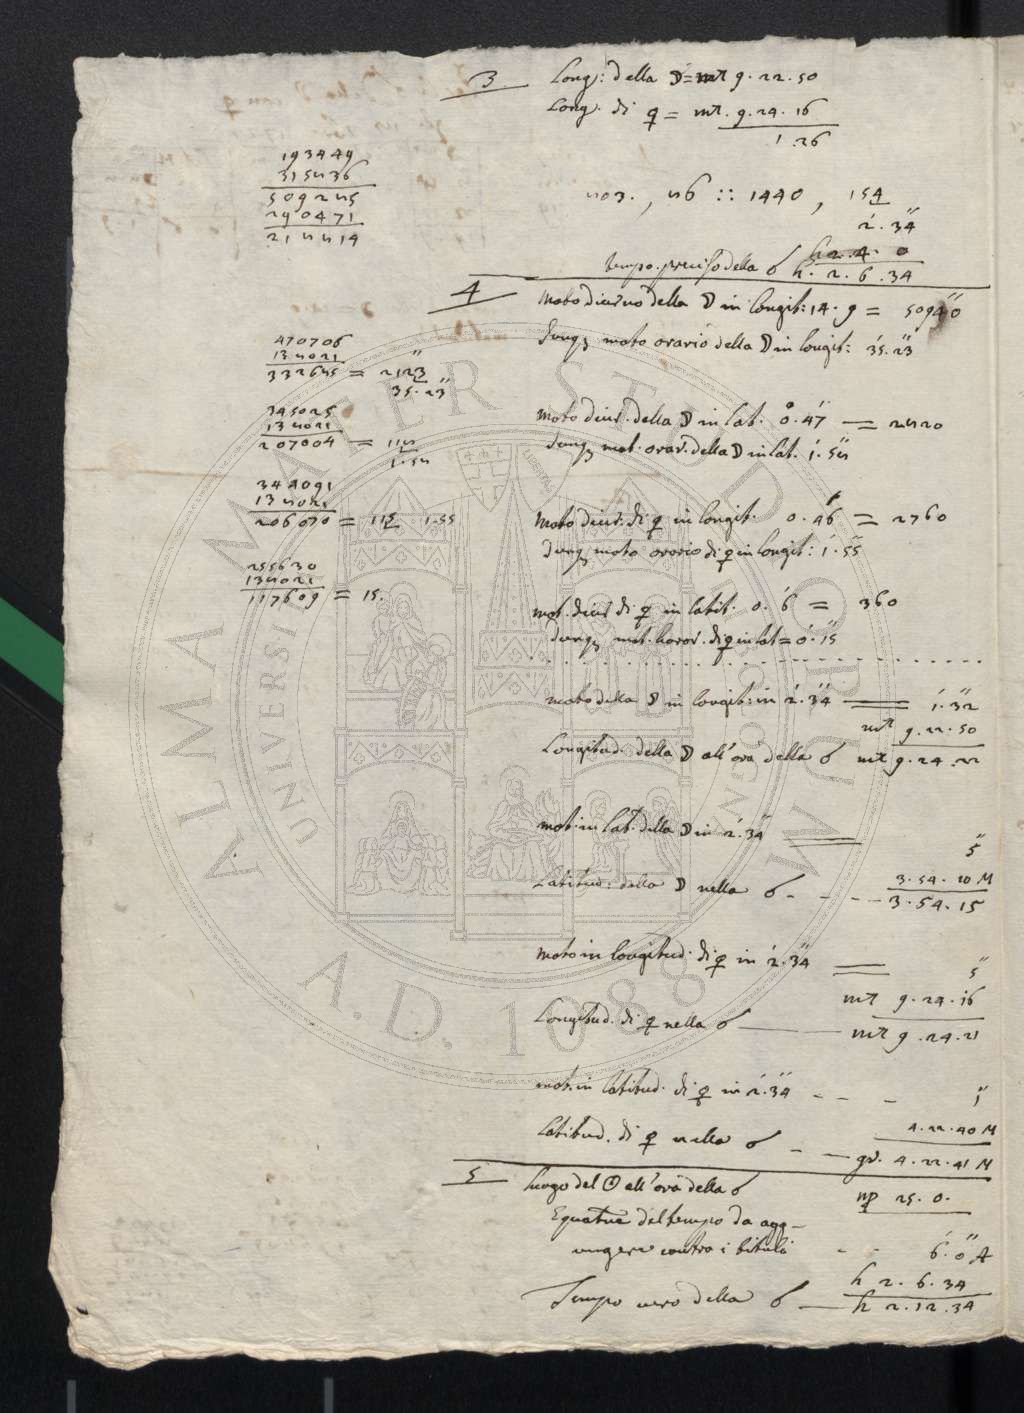 3 Long: della ☽ = ♏ 9. 22. 50
Long. di ♀ = ♏. 9. 24. 16
1. 26
193449
315536
509245
290471
215514
503. , 56 :: 1440 , 154
2. 34''
h 2. 4. 0
tempo preciso della ☌ h. 2. 6. 34
4 Moto diurno della ☽ in longit: 14. 9 = 50940''
dunq; moto orario della ☽ in longit: 35'. 23''
470706
135021
332645 = 2123''
35. 23''
Moto diur. della ☽ in lat. 0°. 47' = 2520
dunq; mot. orar. della ☽ in lat. 1'. 55''
345025
135021
207004 = 115
1. 55
344091
135021
206070 = 115 1. 55
Moto diur. di ♀ in longit. 0. 46' = 2760
dunq; moto orario di ♀ in longit: 1'. 55''
255630
135021
117609 = 15.
mot. diur di ♀ in latit. 0. 6' = 360
dunq; mot. horar. di ♀ in lat = 0'. 15''
moto della ☽ in longit: in 2'. 34'' = 1'. 32''
♏ 9. 22. 50
Longitud. della ☽ all'ora della ☌ ♏ 9. 24. 22
mot. in lat. della ☽ in 2'. 34'' = 5''
3. 54. 10 M
Latitud: della ☽ nella ☌ - - - - 3. 54. 15
moto in longitud. di ♀ in 2'. 34'' = 5''
♏ 9. 24. 16
Longitud. di ♀ nella ☌ — ♏ 9. 24. 21
mot. in latitud. di ♀ in 2'. 34'' - - - 1''
4. 22. 40 M
latitud. di ♀ nella ☌ - — gr. 4. 22. 41 M
5 luogo del ☉ all'ora della ☌ ♍ 25. 0.
Equatne del tempo da agg-
ungere contro i titulo - - 6'. 0'' A
h 2. 6. 34
Tempo vero della ☌ — h 2. 12. 34
ALMA MATER STUDIORUM
UNIVERSI
BONON
A.D. 1088